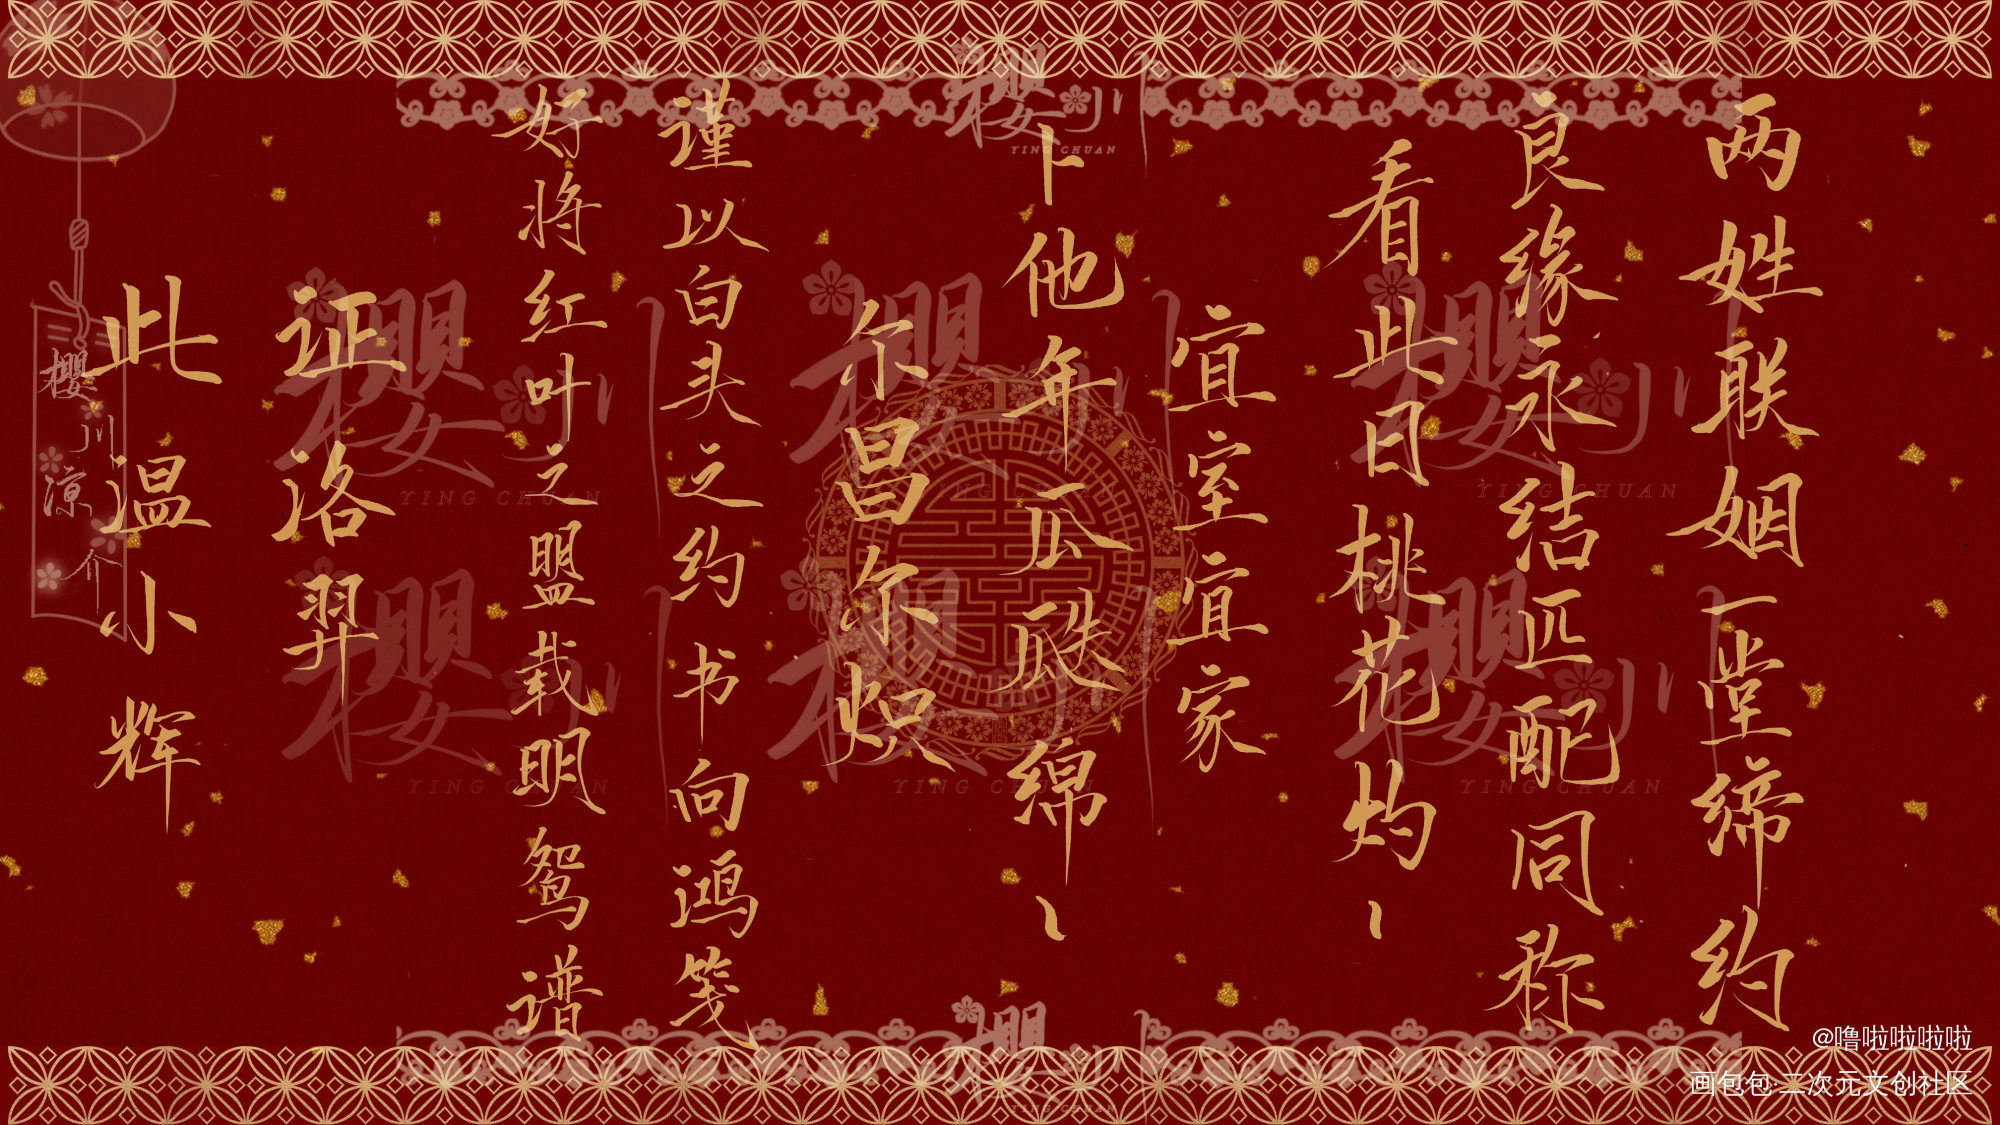 两姓联姻一堂缔约
良缘永结匹配同称
看此日桃花灼丶
宜室宜家
卜他年瓜瓞绵丶
尔昌尔炽
谨以白头之约书向鸿笺
好将红叶之盟载明鸳谱
证洛羿
此温小辉
櫻川
YING CHUAN
櫻川
YING CHUAN
櫻川
YING CHUAN
櫻川
YING CHUAN
櫻川
YING CHUAN
櫻川
YING CHUAN
櫻川
YING CHUAN
櫻川
YING CHUAN
櫻川凉介
@噜啦啦啦啦
画包包·二次元文创社区